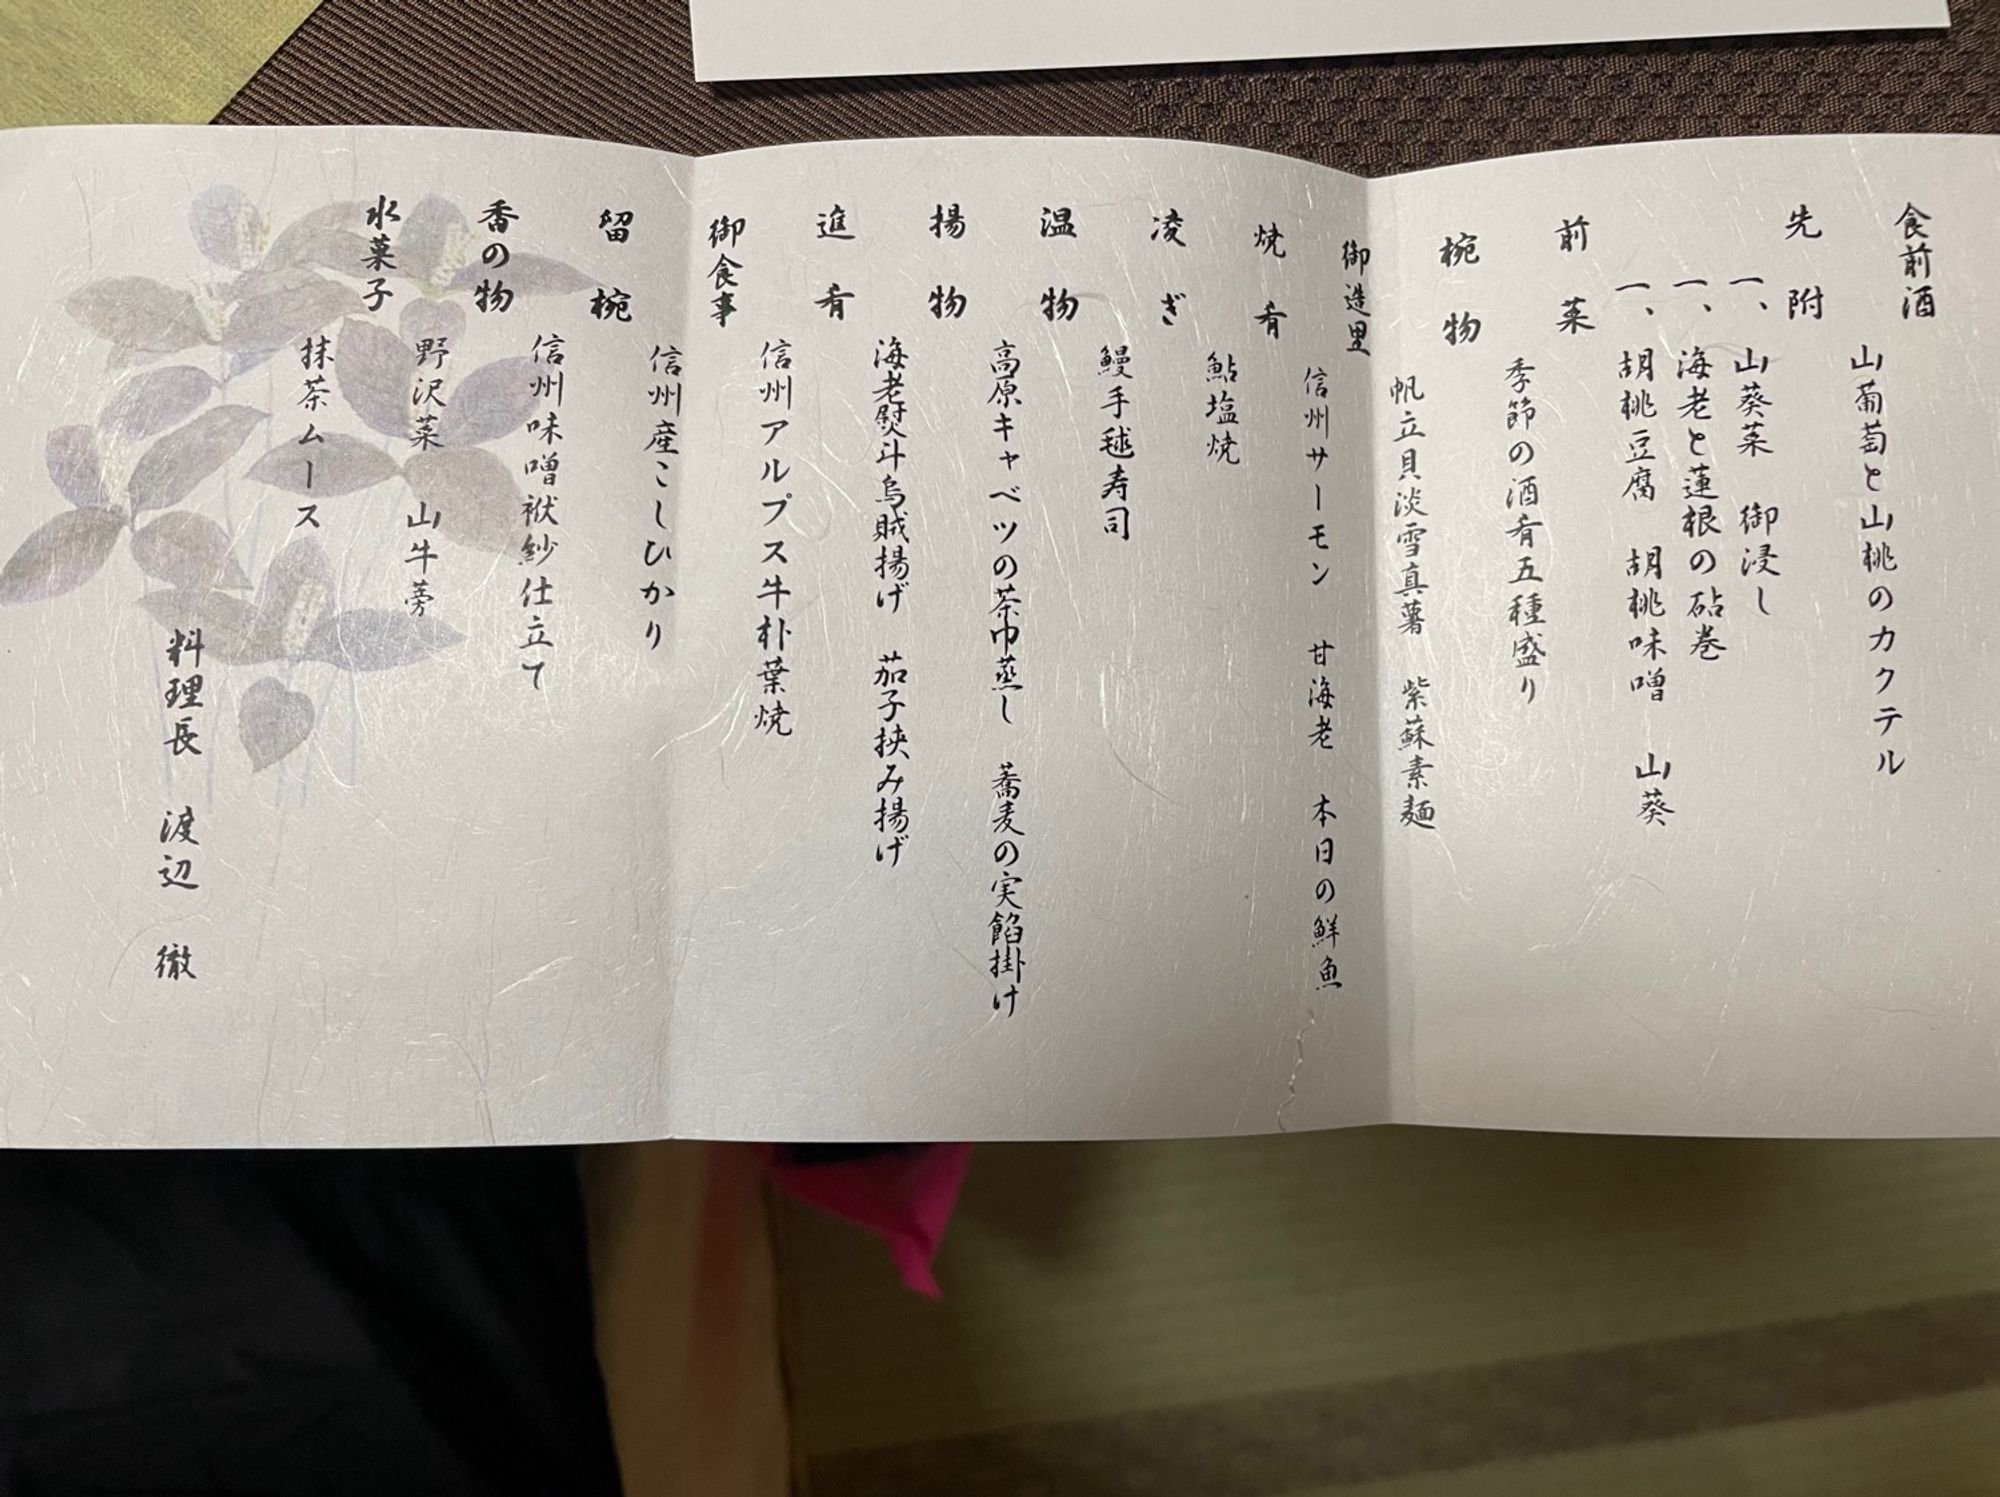 食前酒
山葡萄と山桃のカクテル
先附
一、山葵菜 御浸し
一、海老と蓮根の砧巻
一、胡桃豆腐 胡桃味噌 山葵
前菜
季節の酒肴五種盛り
椀物
帆立貝淡雪真薯 紫蘇素麺
御造里
信州サーモン 甘海老 本日の鮮魚
焼肴
鮎塩焼
凌ぎ
鰻手毬寿司
温物
高原キャベツの茶巾蒸し 蕎麦の実餡掛け
揚物
海老熨斗烏賊揚げ 茄子挟み揚げ
進肴
信州アルプス牛朴葉焼
御食事
信州産こしひかり
留椀
信州味噌袱紗仕立て
香の物
野沢菜 山牛蒡
水菓子
抹茶ムース
料理長 渡辺 徹